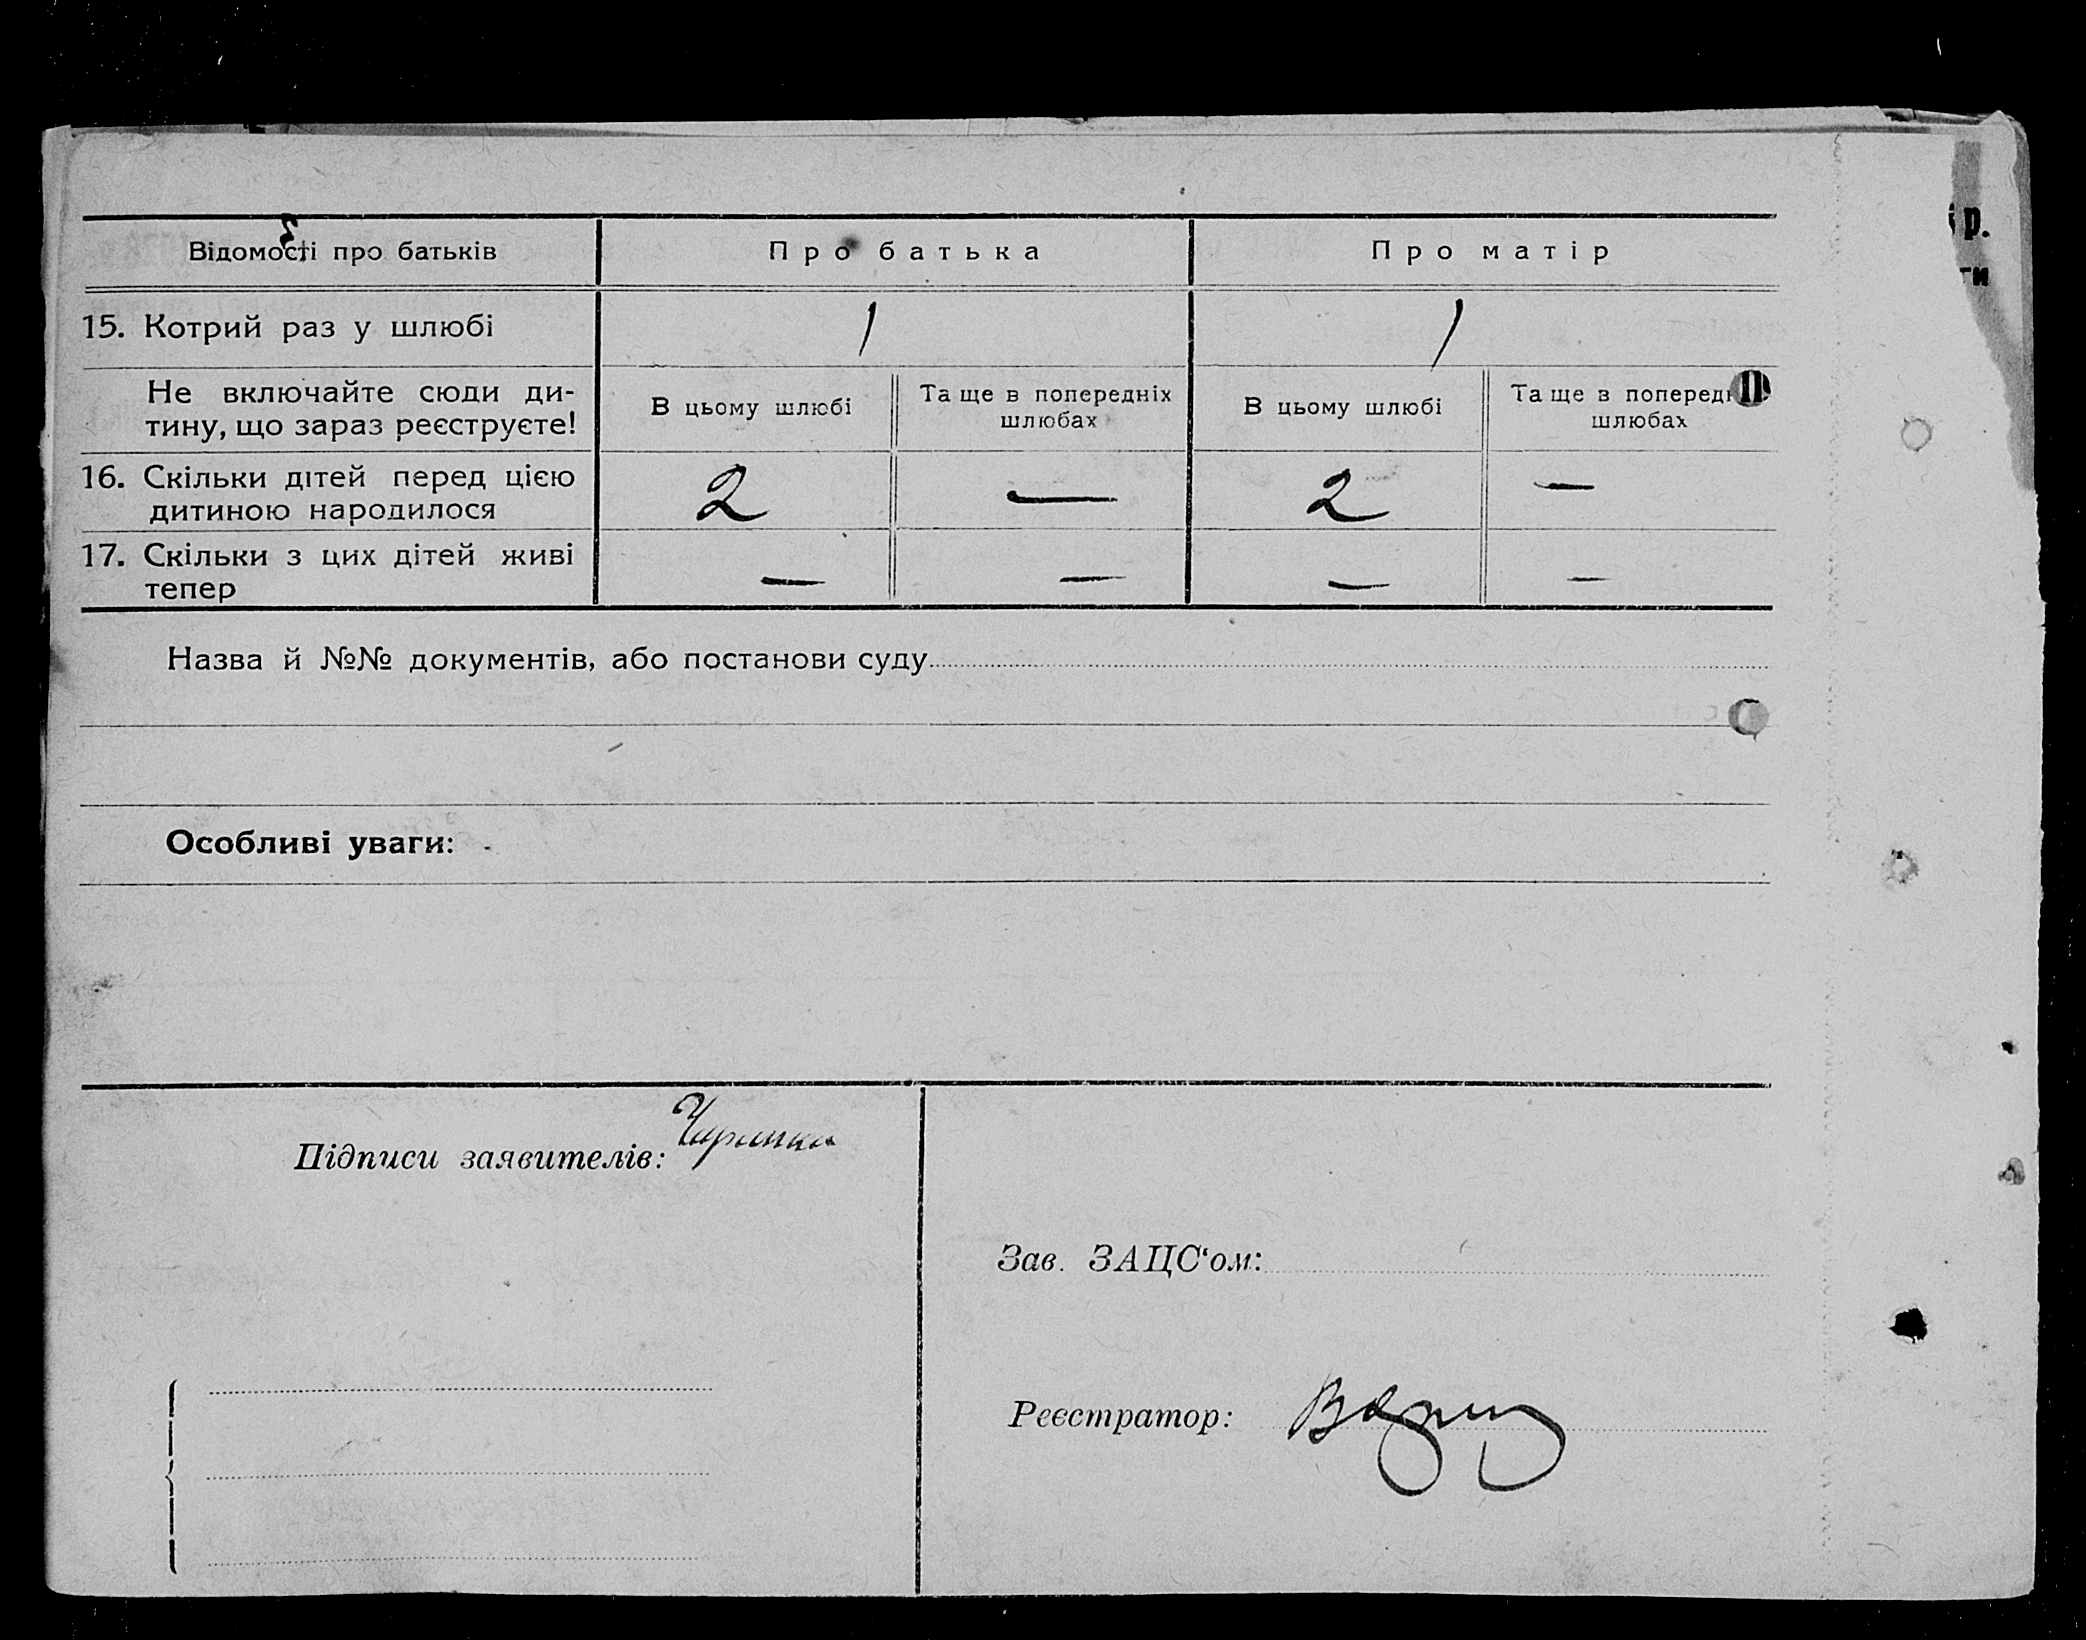 Відомості про батьків
Про батька
Про матір
15. Котрий раз у шлюбі
1
1
Не включайте сюди ди-
тину, що зараз реєструєте!
В цьому шлюбі
Та ще в попередніх
шлюбах
В цьому шлюбі
Та ще в попередн
шлюбах
16. Скільки дітей перед цією
дитиною народилося
2
—
2
—
17. Скільки з цих дітей живі
тепер
—
—
—
—
Назва й №№ документів, або постанови суду
Особливі уваги:
Підписи заявителів:
Зав. ЗАЦС‘ом:
Реєстратор:
р.
ти